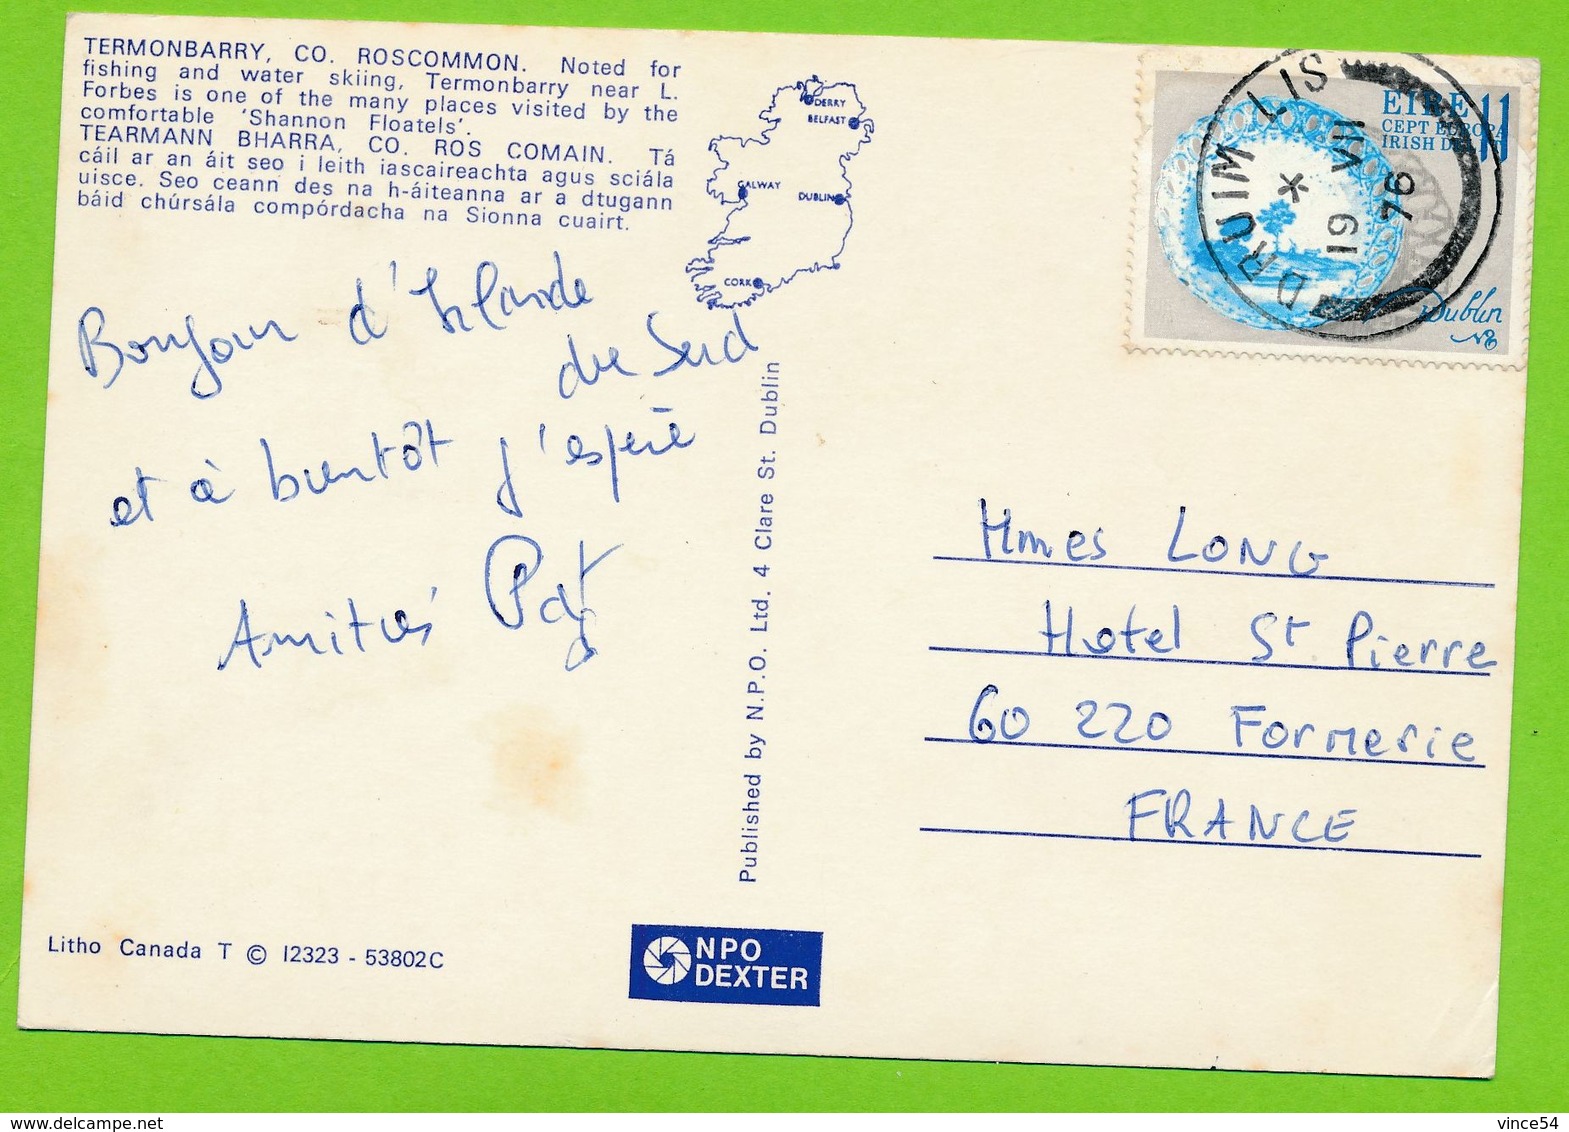 TERMONBARRY, CO. ROSCOMMON. Noted for
fishing and water skiing, Termonbarry near L.
Forbes is one of the many places visited by the
comfortable 'Shannon Floatels'.
TEARMANN BHARRA, CO. ROS COMAIN. Tá
cáil ar an áit seo i leith iascaireachta agus sciála
uisce. Seo ceann des na h-áiteanna ar a dtugann
báid chúrsála compórdacha na Sionna cuairt.
DERRY
BELFAST
GALWAY
DUBLIN
CORK
Bonjour d'Irlande
du Sud
et à bientôt j'espère
Amitiés Pat
Published by N.P.O. Ltd. 4 Clare St. Dublin
EIRE 11
CEPT EUROPA
IRISH D
Dublin
DRUIM LIS
19 VII
76
Mmes LONG
Hotel St Pierre
60 220 Formerie
FRANCE
Litho Canada T © I2323 - 53802C
NPO
DEXTER
vince54